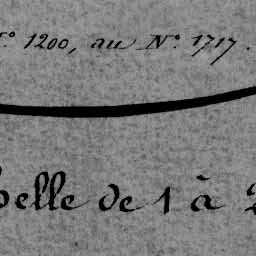 N.° 1200, au N.° 1717.
elle de 1 à 2